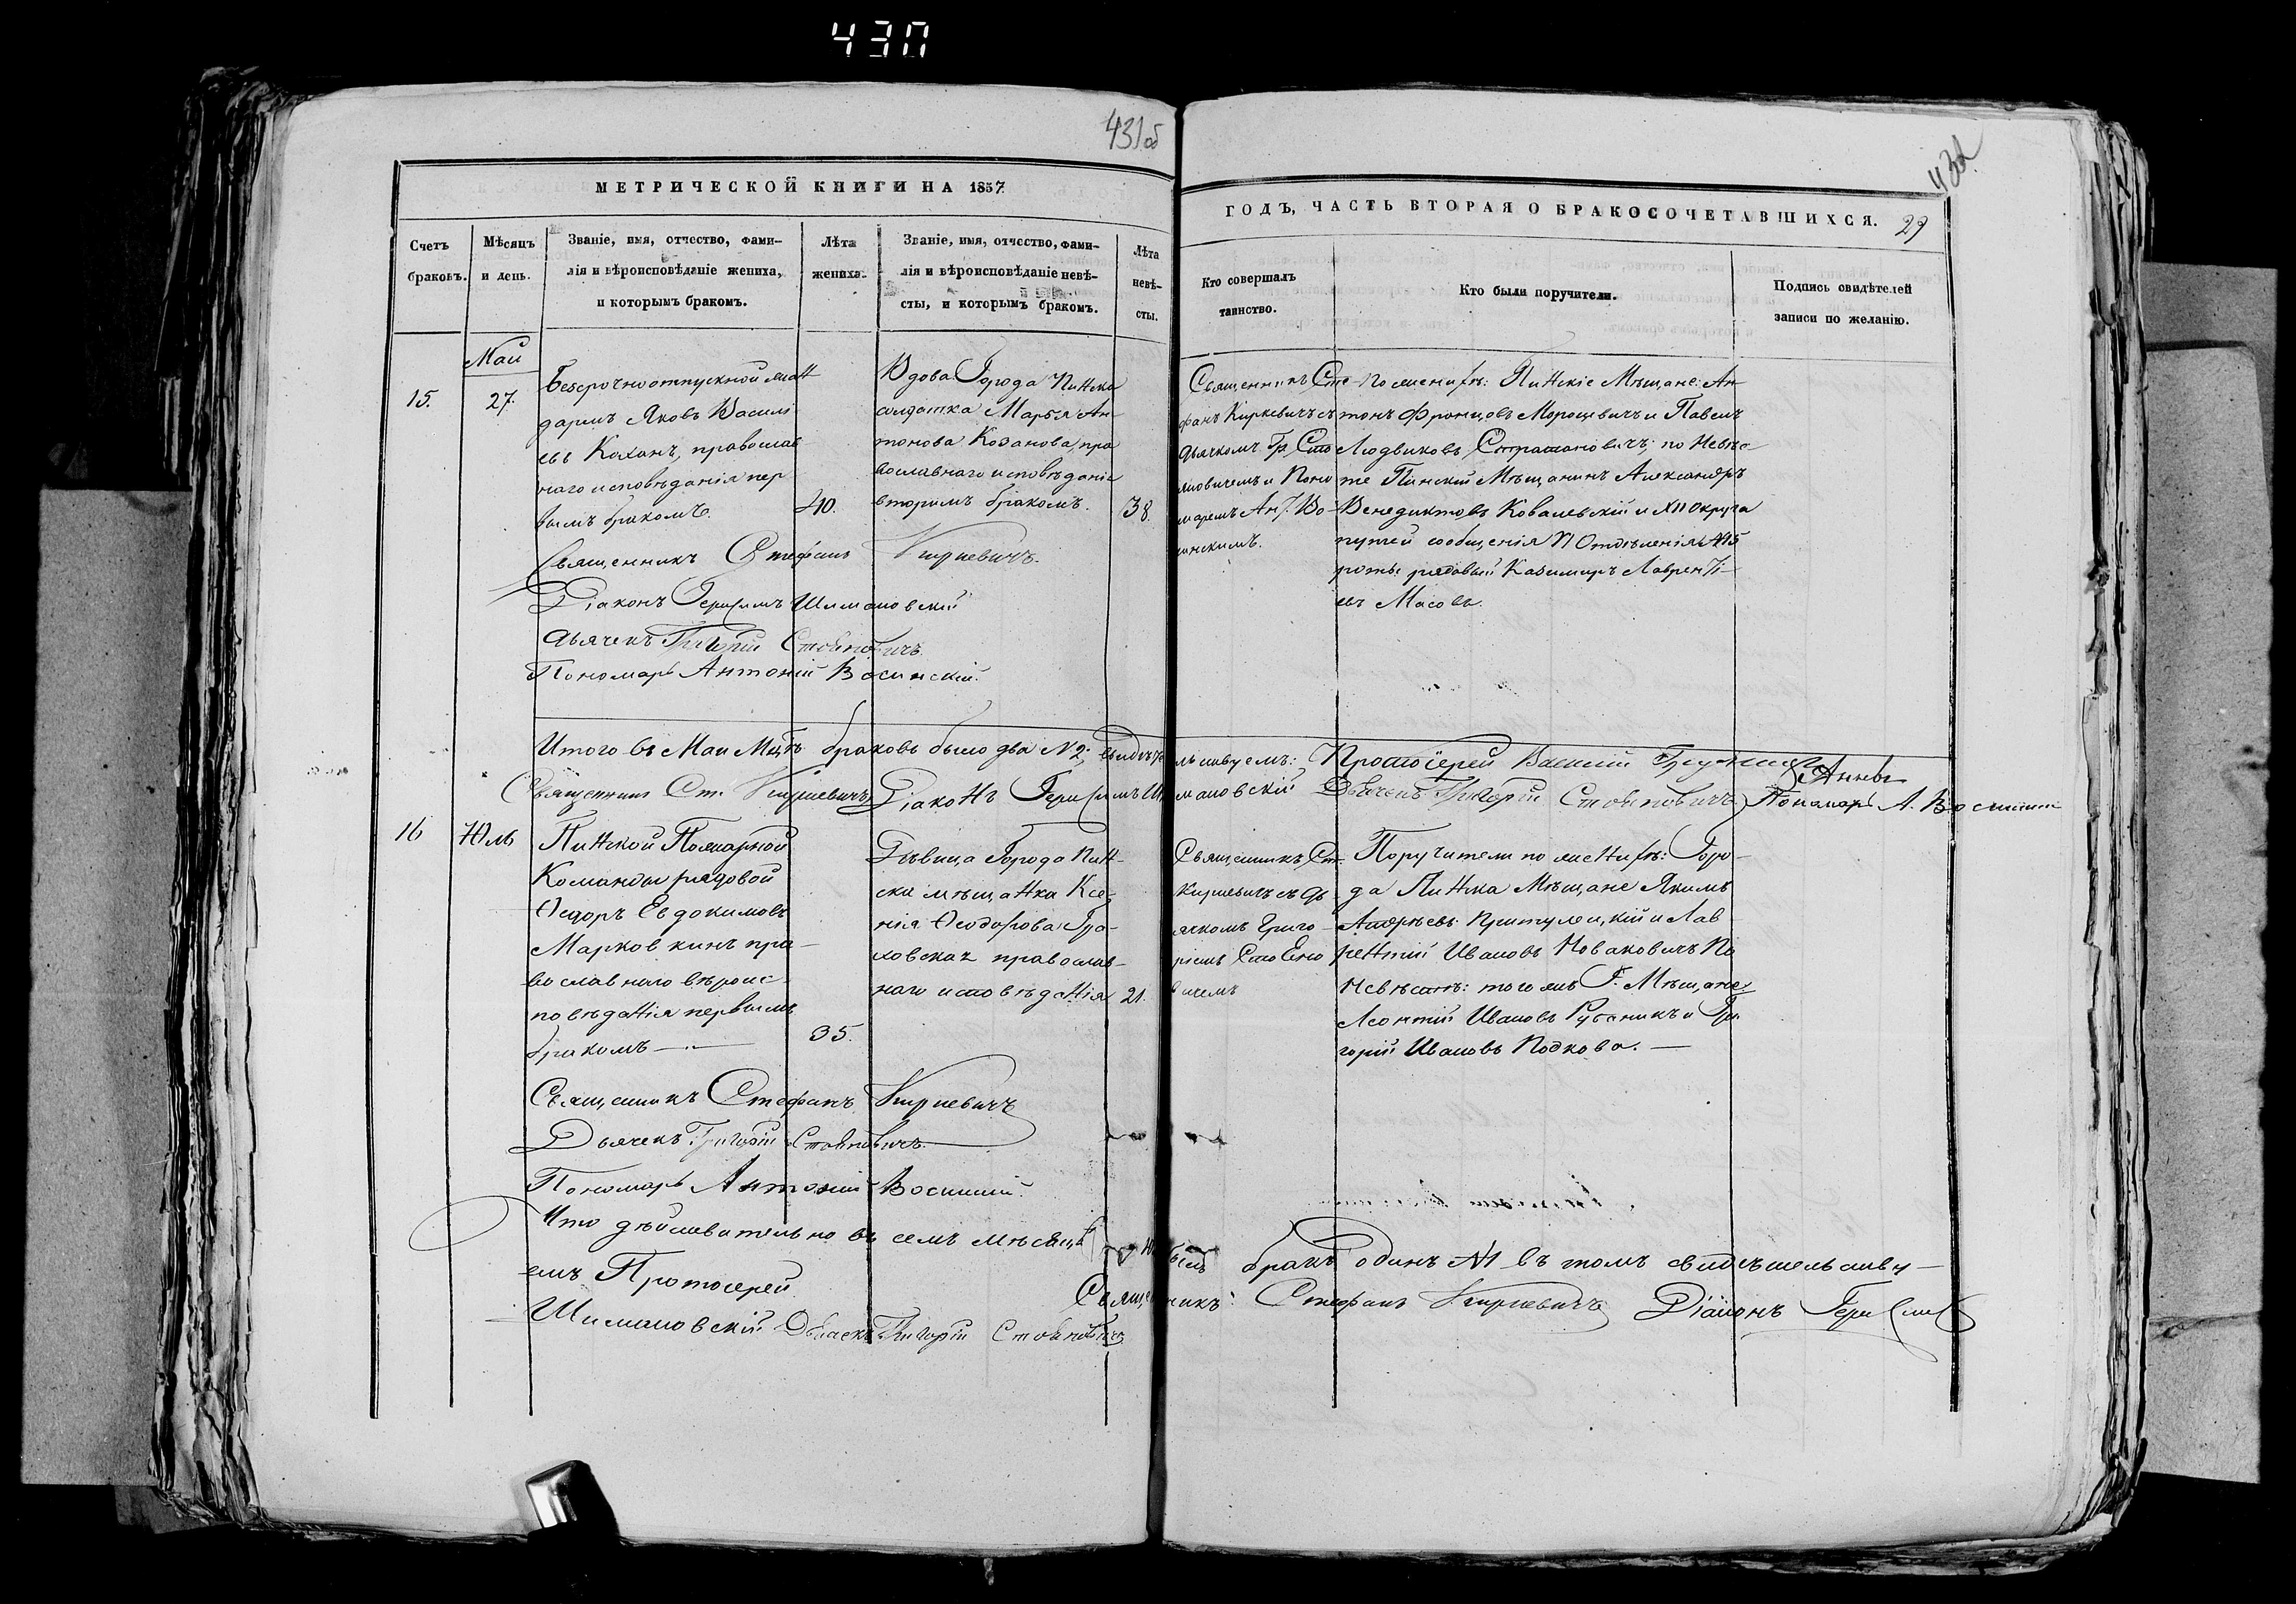 430
431об
432
МЕТРИЧЕСКОЙ КНИГИ НА 1857
ГОДЪ, ЧАСТЬ ВТОРАЯ О БРАКОСОЧЕТАВШИХСЯ.
29
Счетъ
браковъ.
Мѣсяцъ
и день.
Званіе, имя, отчество, фами-
лія и вѣроисповѣданіе жениха,
и которымъ бракомъ.
Лѣта
жениха.
Званіе, имя, отчество, фами-
лія и вѣроисповѣданіе невѣ-
сты, и которымъ бракомъ.
Лѣта
невѣ-
сты.
Кто совершалъ
таинство.
Кто были поручители.
Подпись свидѣтелей
записи по желанію.
15.
Маи
27.
Безсрочноотпускной жан
дармъ Яковъ Василі
евъ Коханъ, православ
наго исповѣданія пер
вымъ бракомъ.
40.
Вдова Города Пинска
солдатка Марья Ан-
тонова Козанова, пра
вославнаго исповѣданія
вторымъ бракомъ.
38.
Священникъ Сте-
фанъ Киркевичъ съ
дьячкомъ Гр. Сто
яновичемъ и Поно
маремъ Ант. Во-
синскимъ.
По женихѣ: Пинскіе Мѣщане: Ан-
тонъ Францовъ Морощевичъ и Павелъ
Людвиковъ Страшановичъ; по Невѣс-
те Пинскій Мѣщанинъ Александръ
Венедиктовъ Ковалевскій и XII округа
путей сообщенія II Отдѣленія №15
роты рядовый Казимиръ Лаврентi-
евъ Масовъ.
Священникъ Стефанъ Киркевичъ.
Діаконъ Герасимъ Шимановскій
Дьячекъ Григорій Стояновичъ
Пономарь Антоній Восинскій.
Итого въ Маи Мцѣ браковъ было два №2; свидѣтельствуемъ: Протоіерей Василій
Священникъ Ст. Киркевичъ Діаконъ Герасимъ Шимановскій Дьячекъ Григорій Стояновичъ Пономарь А. Восинскій
16
Юль
Пинской Пожарной
Команды рядовой
Ѳедоръ Евдокимовъ
Марковкинъ пра-
вославнаго вѣроис-
повѣданія первымъ
бракомъ
35.
Дѣвица Города Пин-
ска мѣщанка Ксе-
нія Ѳеодорова Гра-
ховская православ-
наго исповѣданія
21.
Священникъ Ст.
Киркевичъ съ дь
ячкомъ Григо-
ріемъ Стояно
вичемъ
Поручители по женихѣ: Горо-
да Пинска Мѣщане Якимъ
Андрѣевъ Притулецкій и Лав
рентій Ивановъ Новаковичъ По
Невѣстѣ: того жъ Г. Мѣщане
Леонтій Ивановъ Рубаникъ и Гри
горій Ивановъ Подкова.
Священникъ Стефанъ Киркевичъ
Дьячекъ Григорій Стояновичъ.
Пономарь Антоній Восинскій.
Что дѣйствительно въ семъ мѣсяцѣ былъ бракъ одинъ №1 въ томъ свидѣтельству-
емъ Протоіерей Священникъ Стефанъ Киркевичъ Діаконъ Герасимъ
Шимановскій Дьячекъ Григорій Стояновичъ